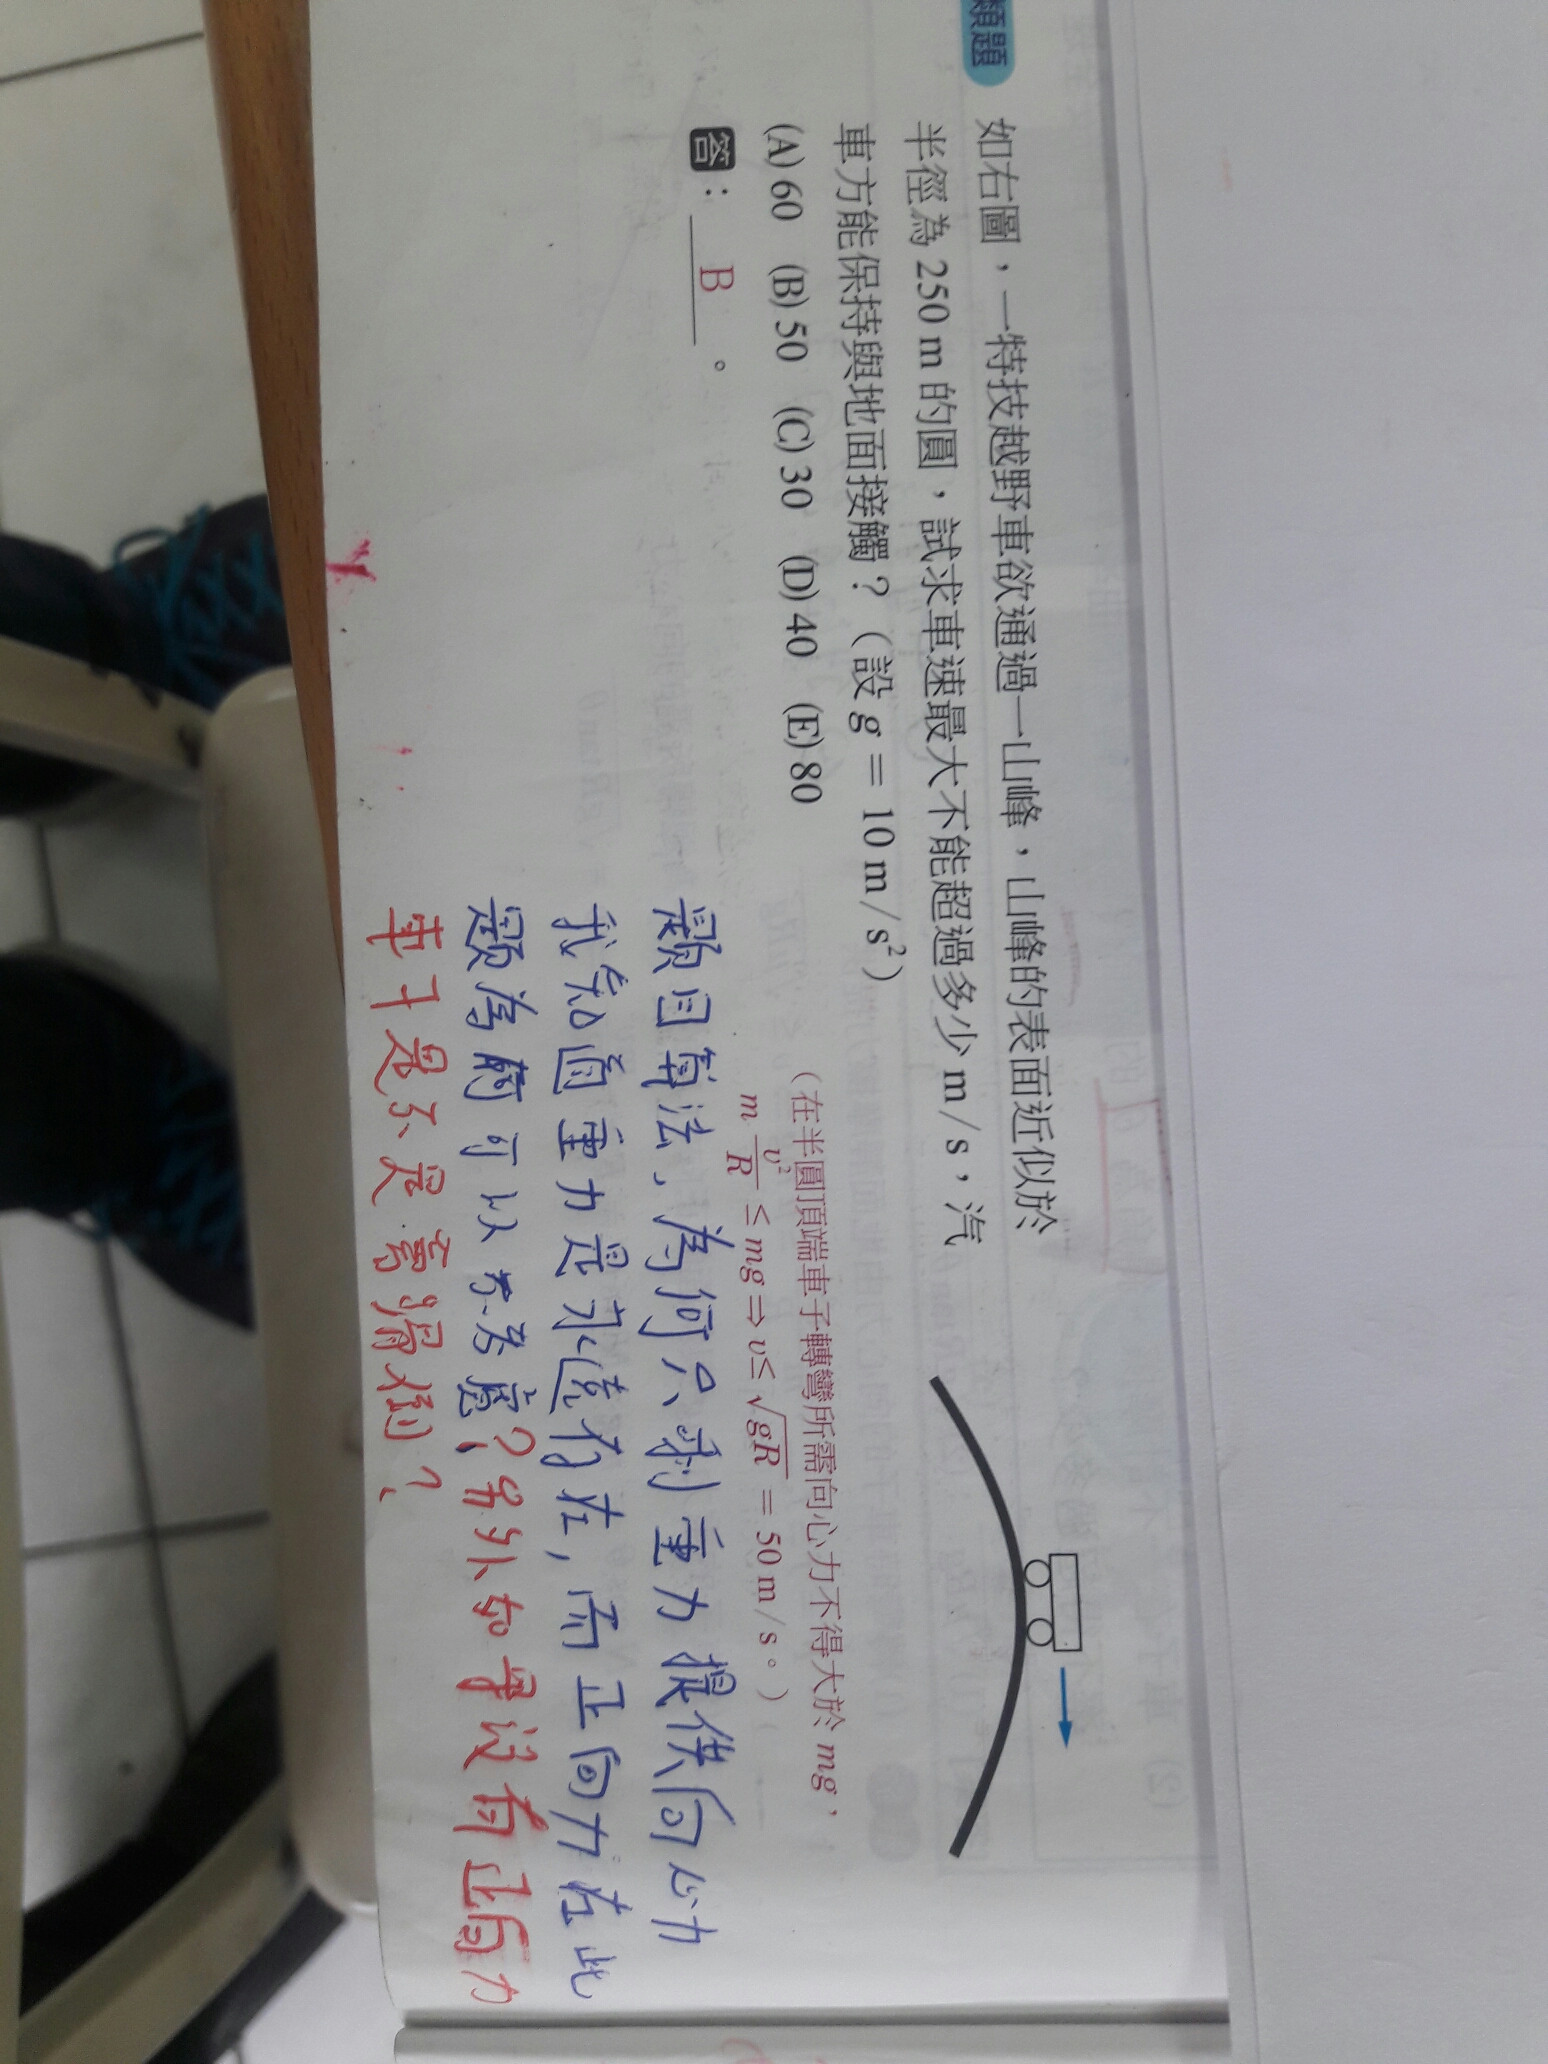 類題
如右圖，一特技越野車欲通過一山峰，山峰的表面近似於
半徑為 250 m 的圓，試求車速最大不能超過多少 m / s，汽
車方能保持與地面接觸？（設 g = 10 m / s²）
(A) 60 (B) 50 (C) 30 (D) 40 (E) 80
答：B。
（在半圓頂端車子轉彎所需向心力不得大於 mg，
m v²/R ≤ mg ⇒ v ≤ √gR = 50 m / s。）
題目算法，為何只剩重力提供向心力
我知道重力是永遠存在，而正向力在此
題為何可以不考慮？另外如果沒有正向力
車子是不是會滑倒？